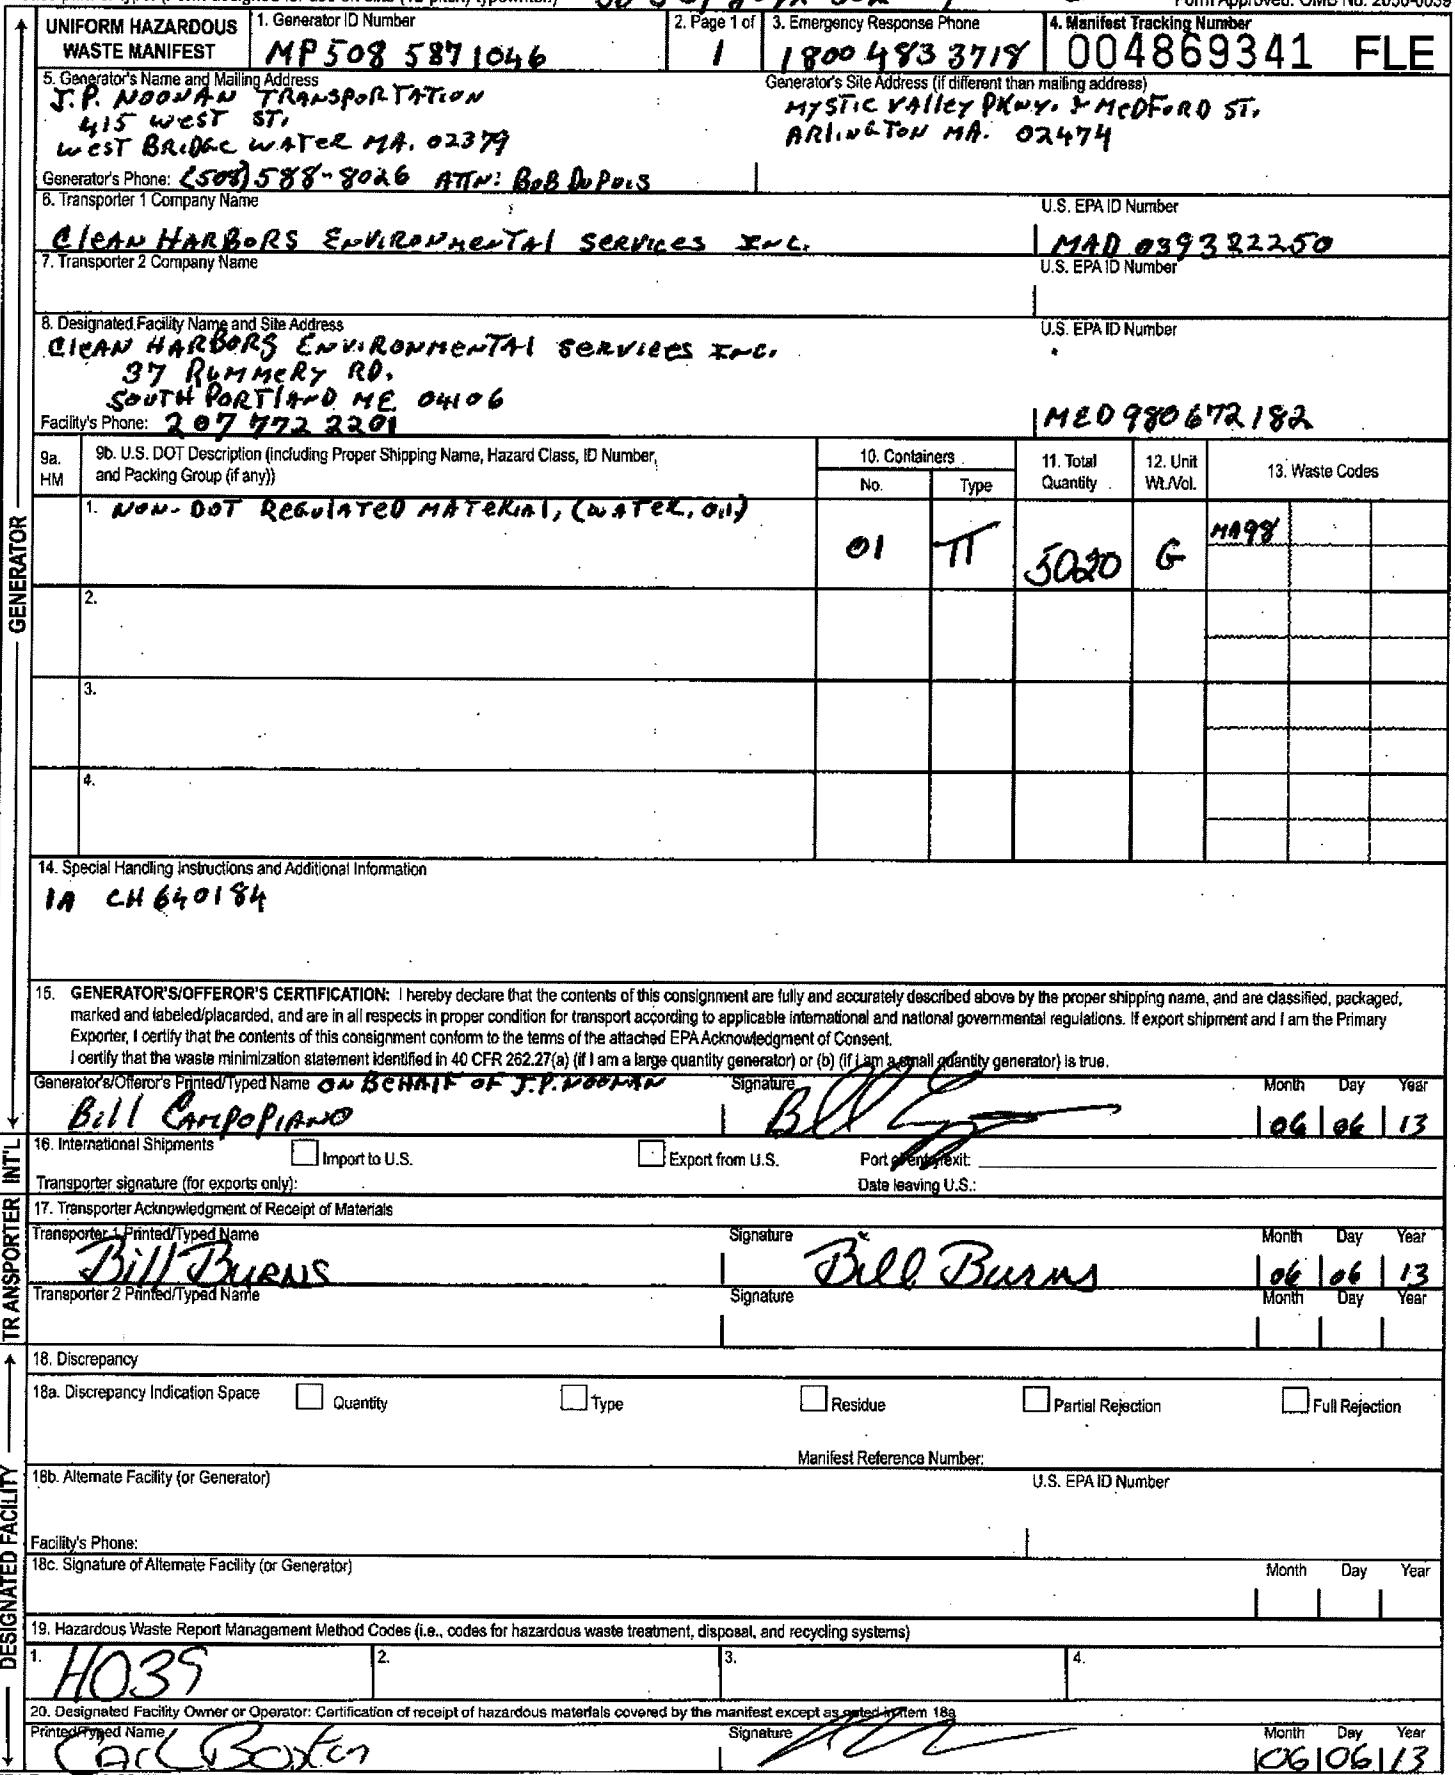 UNIFORM HAZARDOUS WASTE MANIFEST
1. Generator ID Number
MP508 5871046
2. Page 1 of
1
3. Emergency Response Phone
1800 483 3718
4. Manifest Tracking Number
004869341 FLE
5. Generator's Name and Mailing Address
J.P. NOONAN TRANSPORTATION
415 WEST ST.
WEST BRIDGEWATER MA. 02379
Generator's Phone: (508) 588-8026 ATTN: BOB DUPUIS
Generator's Site Address (if different than mailing address)
MYSTIC VAlley PKWY. & MEDFORD ST.
ARLINGTON MA. 02474
6. Transporter 1 Company Name
ClEAN HARBORS ENVIRONMENTAl SERVICES INC.
U.S. EPA ID Number
MAD 039322250
7. Transporter 2 Company Name
U.S. EPA ID Number
8. Designated Facility Name and Site Address
ClEAN HARBORS ENVIRONMENTAl SERVICES INC.
37 RUMMERY RD.
SOUTH PORTlAND ME 04106
Facility's Phone: 207 772 2201
U.S. EPA ID Number
MED980672182
9a. HM
9b. U.S. DOT Description (including Proper Shipping Name, Hazard Class, ID Number, and Packing Group (if any))
10. Containers
No.
Type
11. Total Quantity
12. Unit Wt./Vol.
13. Waste Codes
1. NON-DOT REGULATED MATERIAL, (WATER, OIL)
01
TT
5020
G
MA98
2.
3.
4.
14. Special Handling Instructions and Additional Information
1A CH640184
15. GENERATOR'S/OFFEROR'S CERTIFICATION: I hereby declare that the contents of this consignment are fully and accurately described above by the proper shipping name, and are classified, packaged,
marked and labeled/placarded, and are in all respects in proper condition for transport according to applicable international and national governmental regulations. If export shipment and I am the Primary
Exporter, I certify that the contents of this consignment conform to the terms of the attached EPA Acknowledgment of Consent.
I certify that the waste minimization statement identified in 40 CFR 262.27(a) (if I am a large quantity generator) or (b) (if I am a small quantity generator) is true.
Generator's/Offeror's Printed/Typed Name ON BEHALF OF J.P. NOONAN
Bill CAMPOPIANO
Signature
Month Day Year
06 06 13
16. International Shipments
Import to U.S.
Export from U.S.
Port of entry/exit:
Transporter signature (for exports only):
Date leaving U.S.:
17. Transporter Acknowledgment of Receipt of Materials
Transporter 1 Printed/Typed Name
Bill BURNS
Signature
Bill Burns
Month Day Year
06 06 13
Transporter 2 Printed/Typed Name
Signature
Month Day Year
18. Discrepancy
18a. Discrepancy Indication Space
Quantity
Type
Residue
Partial Rejection
Full Rejection
Manifest Reference Number:
18b. Alternate Facility (or Generator)
U.S. EPA ID Number
Facility's Phone:
18c. Signature of Alternate Facility (or Generator)
Month Day Year
19. Hazardous Waste Report Management Method Codes (i.e., codes for hazardous waste treatment, disposal, and recycling systems)
1. H039
2.
3.
4.
20. Designated Facility Owner or Operator: Certification of receipt of hazardous materials covered by the manifest except as noted in Item 18a
Printed/Typed Name
Carl
Signature
Month Day Year
06 06 13
GENERATOR
INT'L
TRANSPORTER
DESIGNATED FACILITY